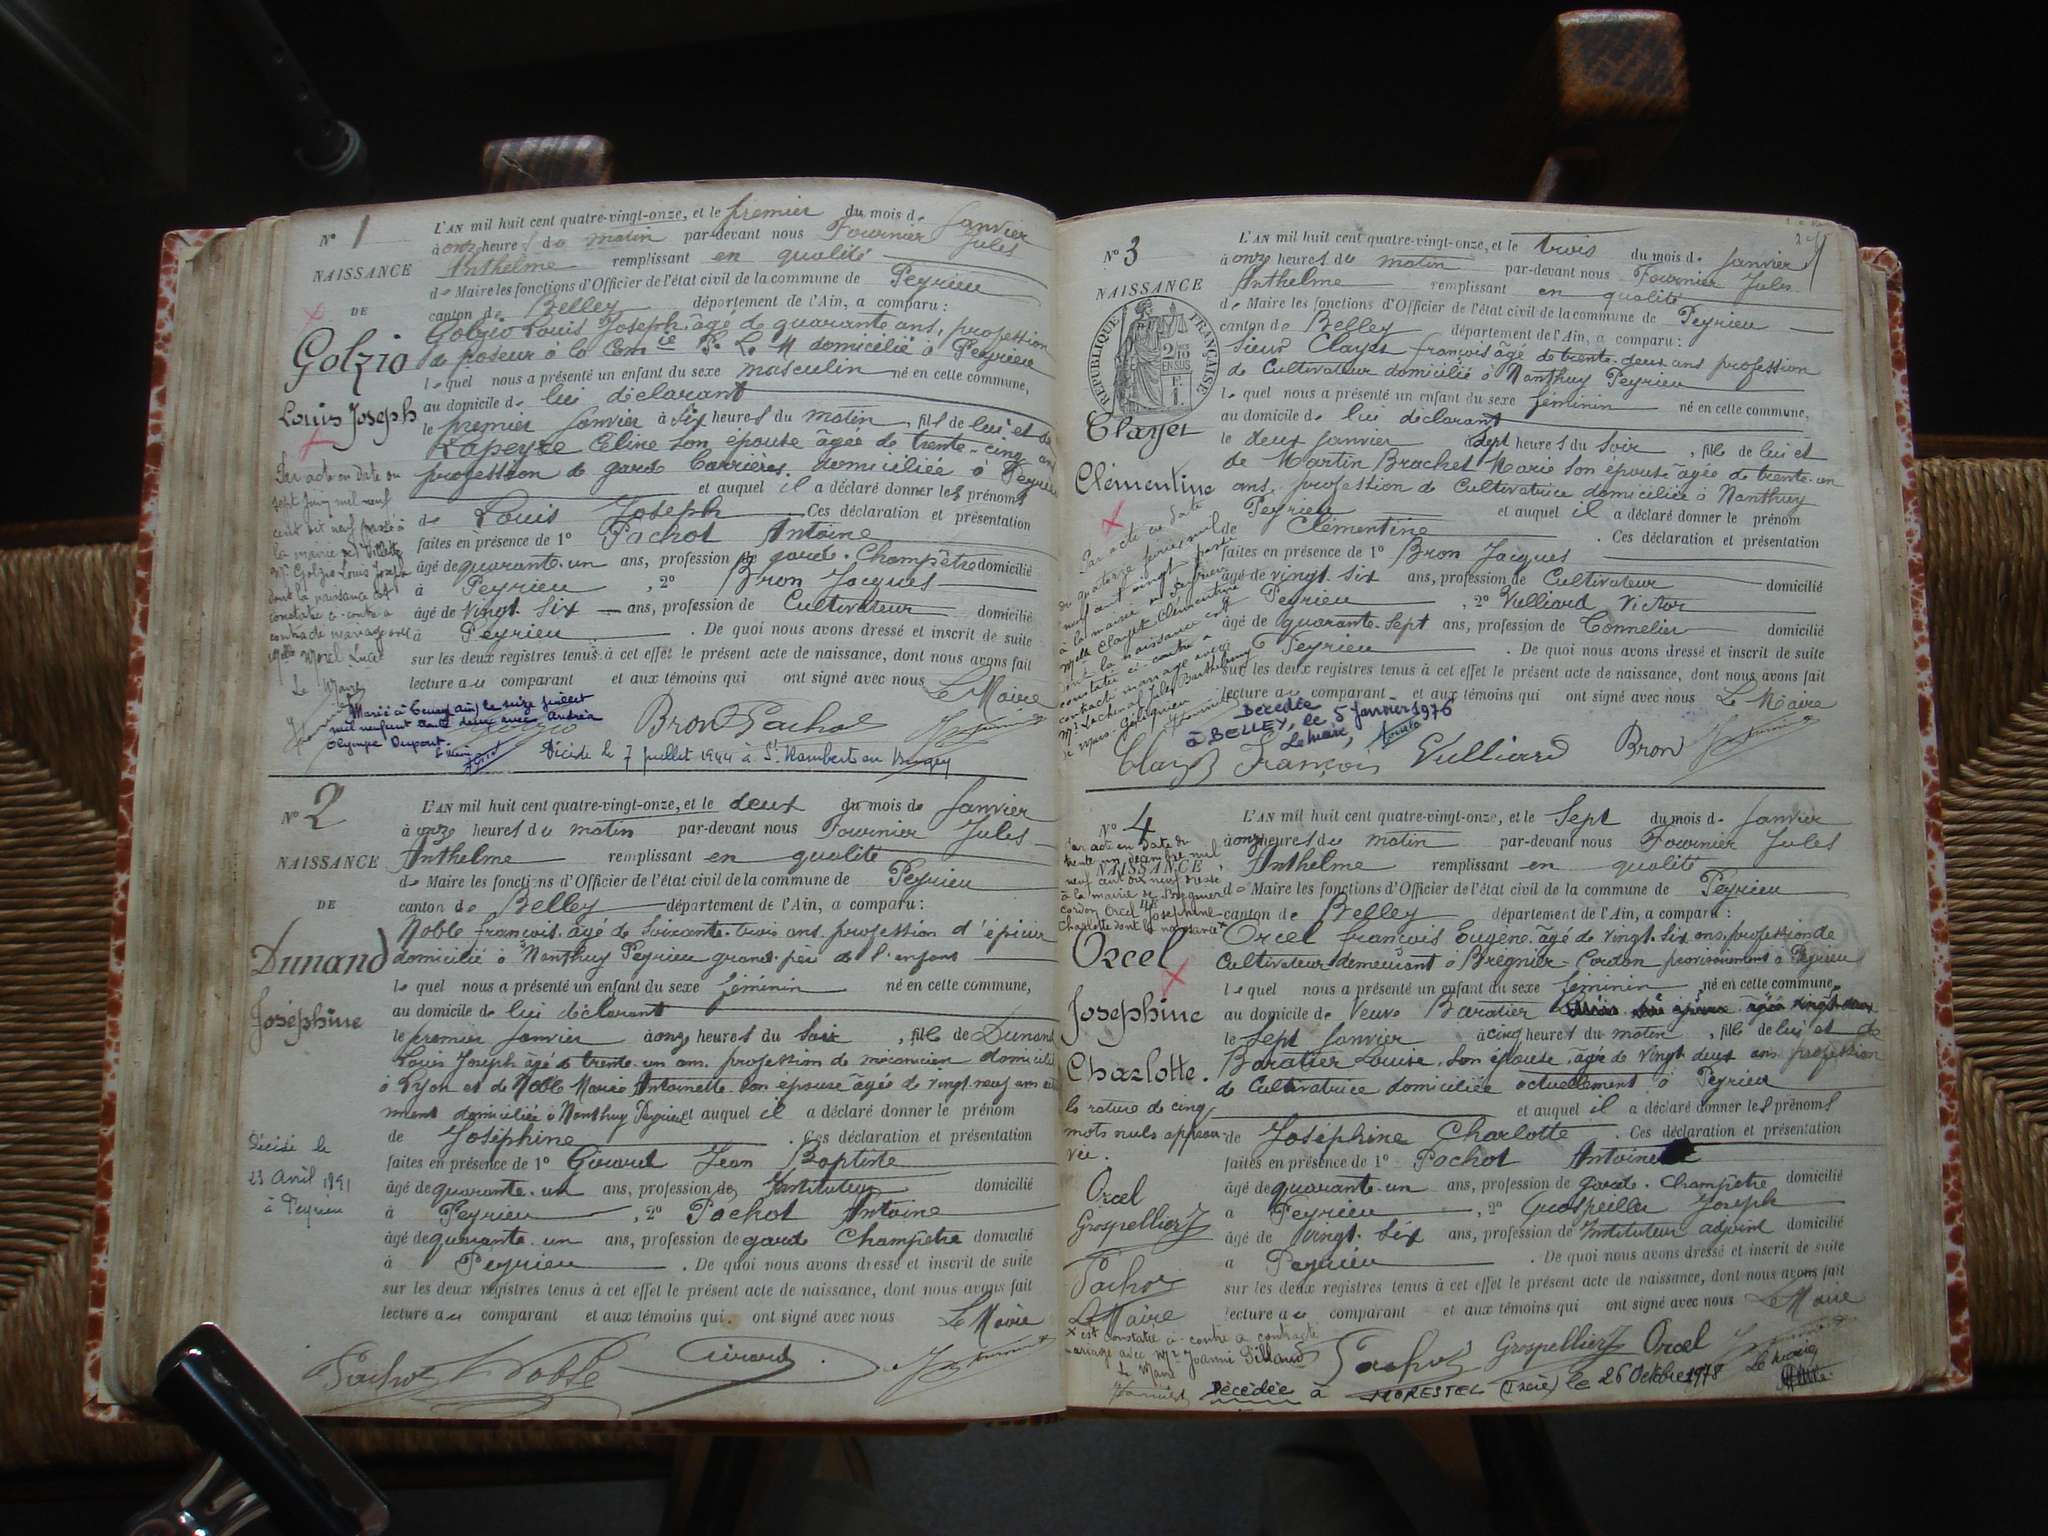 N° 1
NAISSANCE
DE
Golzio
Louis Joseph
L'AN mil huit cent quatre-vingt-onze, et le premier du mois de Janvier
à onze heures du matin par-devant nous Fournier Jules
Anthelme remplissant en qualité
de Maire les fonctions d'Officier de l'état civil de la commune de Peyrieu
canton de Belley département de l'Ain, a comparu :
Golzio Louis Joseph âgé de quarante ans, profession
de poseur à la Comie P. L. M domicilié à Peyrieu
lequel nous a présenté un enfant du sexe masculin né en cette commune,
au domicile de lui déclarant
le premier Janvier à six heures du matin, fils de lui et de
Lapeyre Céline son épouse âgée de trente-cinq ans
profession de garde barrières, domiciliée à Peyrieu
et auquel il a déclaré donner les prénoms
de Louis Joseph Ces déclaration et présentation
faites en présence de 1° Pachot Antoine
âgé de quarante-un ans, profession de garde-Champêtre domicilié
à Peyrieu, 2° Bron Jacques
âgé de vingt-six ans, profession de Cultivateur domicilié
à Peyrieu. De quoi nous avons dressé et inscrit de suite
sur les deux registres tenus à cet effet le présent acte de naissance, dont nous avons fait
lecture au comparant et aux témoins qui ont signé avec nous Le Maire
Par acte en date du
sept Juin mil neuf
cent dix neuf passé à
la mairie de
Mr Golzio Louis Joseph
dont la naissance est
constatée ci-contre a
contracté mariage avec
Melle Morel Lucie
Le Maire
Marié à (Ain) le seize juillet
mil neuf cent deux avec Andréa
Olympe Dupont.
Bron Pachot
Décédé le 7 juillet 1944 à St. Rambert en Bugey
N° 2
NAISSANCE
DE
Dunand
Joséphine
L'AN mil huit cent quatre-vingt-onze, et le deux du mois de Janvier
à onze heures du matin par-devant nous Fournier Jules
Anthelme remplissant en qualité
de Maire les fonctions d'Officier de l'état civil de la commune de Peyrieu
canton de Belley département de l'Ain, a comparu :
Noble françois âgé de soixante-trois ans profession d'épicier
domicilié à Nanthuy Peyrieu grand-père de l'enfant
lequel nous a présenté un enfant du sexe féminin né en cette commune,
au domicile de lui déclarant
le premier Janvier à onze heures du soir, fille de Dunand
Louis Joseph âgé de trente-un ans profession de mécanicien domicilié
à Lyon et de Noble Marie Antoinette son épouse âgée de vingt-neuf ans
domiciliée à Nanthuy Peyrieu et auquel il a déclaré donner le prénom
de Joséphine. Ces déclaration et présentation
faites en présence de 1° Girard Jean Baptiste
âgé de quarante-un ans, profession de Instituteur domicilié
à Peyrieu, 2° Pachot Antoine
âgé de quarante-un ans, profession de garde Champêtre domicilié
à Peyrieu. De quoi nous avons dressé et inscrit de suite
sur les deux registres tenus à cet effet le présent acte de naissance, dont nous avons fait
lecture au comparant et aux témoins qui ont signé avec nous Le Maire
Décédé le
23 Avril 1891
à Peyrieu
Pachot Noble Girard
N° 3
NAISSANCE
RÉPUBLIQUE FRANÇAISE
2/10
EN SUS
Clayet
Clémentine
L'AN mil huit cent quatre-vingt-onze, et le trois du mois de Janvier
à onze heures du matin par-devant nous Fournier Jules
Anthelme remplissant en qualité
de Maire les fonctions d'Officier de l'état civil de la commune de Peyrieu
canton de Belley département de l'Ain, a comparu :
Sieur Clayet françois âgé de trente-deux ans profession
de Cultivateur domicilié à Nanthuy Peyrieu
lequel nous a présenté un enfant du sexe féminin né en cette commune,
au domicile de lui déclarant
le deux Janvier à sept heures du soir, fille de lui et
de Martin Brachet Marie son épouse âgée de trente-un
ans, profession de Cultivatrice domiciliée à Nanthuy
Peyrieu et auquel il a déclaré donner le prénom
Clémentine. Ces déclaration et présentation
faites en présence de 1° Bron Jacques
âgé de vingt-six ans, profession de Cultivateur domicilié
Peyrieu, 2° Vulliard Victor
âgé de quarante-sept ans, profession de Tonnelier domicilié
à Peyrieu. De quoi nous avons dressé et inscrit de suite
sur les deux registres tenus à cet effet le présent acte de naissance, dont nous avons fait
lecture au comparant et aux témoins qui ont signé avec nous Le Maire
Par acte en date
du quatorze février mil
neuf cent vingt passé
à la mairie de Peyrieu
Melle Clayet Clémentine
dont la naissance est
constatée ci-contre a
contracté mariage avec
Décédée
à BELLEY, le 5 Janvier 1976
Le maire,
Clayet François Vulliard Bron
N° 4
NAISSANCE
Par acte en date du
trente un décembre mil
neuf cent dix neuf dressé
à la mairie de Bregnier
cordon Orcel Joséphine
Charlotte dont la naissance x
Orcel
Joséphine
Charlotte.
L'AN mil huit cent quatre-vingt-onze, et le Sept du mois de Janvier
à onze heures du matin par-devant nous Fournier Jules
Anthelme remplissant en qualité
de Maire les fonctions d'Officier de l'état civil de la commune de Peyrieu
canton de Belley département de l'Ain, a comparu :
Orcel françois Eugène âgé de vingt-six ans, profession de
Cultivateur demeurant à Bregnier-Cordon provisoirement à Peyrieu
lequel nous a présenté un enfant du sexe féminin né en cette commune,
au domicile de Veuve Baratier
le Sept Janvier à cinq heures du matin, fille de lui et de
Baratier Louise, son épouse, âgée de vingt deux ans profession
de Cultivatrice domiciliée actuellement à Peyrieu
et auquel il a déclaré donner les prénoms
de Joséphine Charlotte. Ces déclaration et présentation
faites en présence de 1° Pachot Antoine
âgé de quarante-un ans, profession de garde-Champêtre domicilié
à Peyrieu, 2° Grospellier Joseph
âgé de vingt-six ans, profession de Instituteur adjoint domicilié
à Peyrieu. De quoi nous avons dressé et inscrit de suite
sur les deux registres tenus à cet effet le présent acte de naissance, dont nous avons fait
lecture au comparant et aux témoins qui ont signé avec nous Le Maire
la rature de cinq
mots nuls approu-
vée.
Orcel
Grospellier
Pachot
Le Maire
x est constatée ci-contre a contracté
mariage avec Mr Joanni Billaud
Le Maire
Pachot Grospellier Orcel
Décédée à MORESTEL (Isère) le 26 Octobre 1978 Le Maire